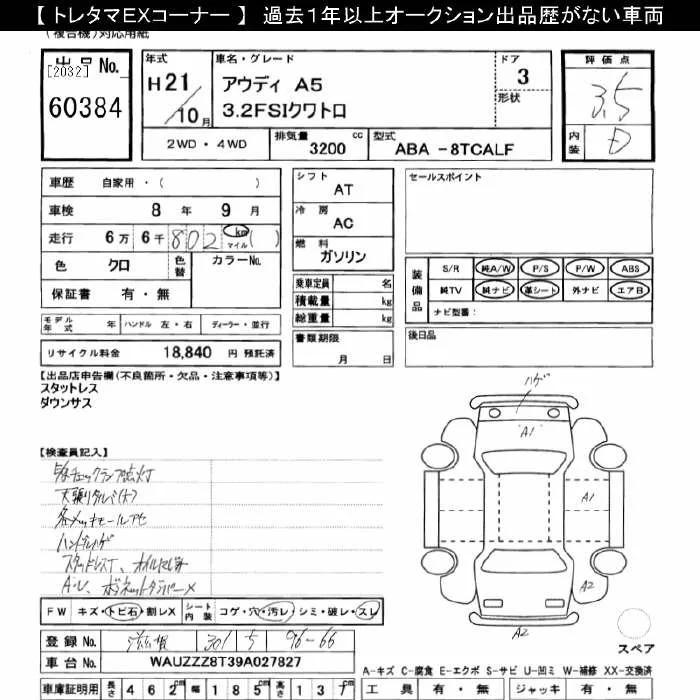 【 トレタマEXコーナー 】 過去1年以上オークション出品歴がない車両
(複合機)対応用紙
出品No.
[2032]
60384
年式
H 21
10 月
車名・グレード
アウディ A5
3.2FSIクワトロ
ドア
3
形状
評価点
3.5
内装
D
2WD・4WD
排気量
3200 cc
型式
ABA -8TCALF
車歴 自家用・( )
車検 8 年 9 月
走行 6万 6千 802 km マイル ( )
色 クロ
色替
カラーNo.
保証書 有・無
シフト
AT
冷房
AC
燃料
ガソリン
乗車定員 名
積載量 kg
総重量 kg
セールスポイント
装備品
S/R 純A/W P/S P/W ABS
純TV 純ナビ 革シート 外ナビ エアB
ナビ型番:
モデル年式 年 ハンドル 左・右 ディーラー・並行
書類期限
月 日
後日品
リサイクル料金 18,840 円 預託済
【出品店申告欄(不良箇所・欠品・注意事項等)】
スタットレス
ダウンサス
【検査員記入】
天張りタルミ(大)
ハンドルハゲ
ハゲ
A1
A1
A2
A2
スペア
FW キズ・トビ石・割レX シート内装 コゲ・穴・汚レ・シミ・破レ・スレ
登録No. 滋賀 301 5 96-66
車台No. WAUZZZ8T39A027827
A-キズ C-腐食 E-エクボ S-サビ U-凹ミ W-補修 XX-交換済
車庫証明用 長さ 462cm 幅 185cm 高さ 137
工具 有・無 ジャッキ 有・無